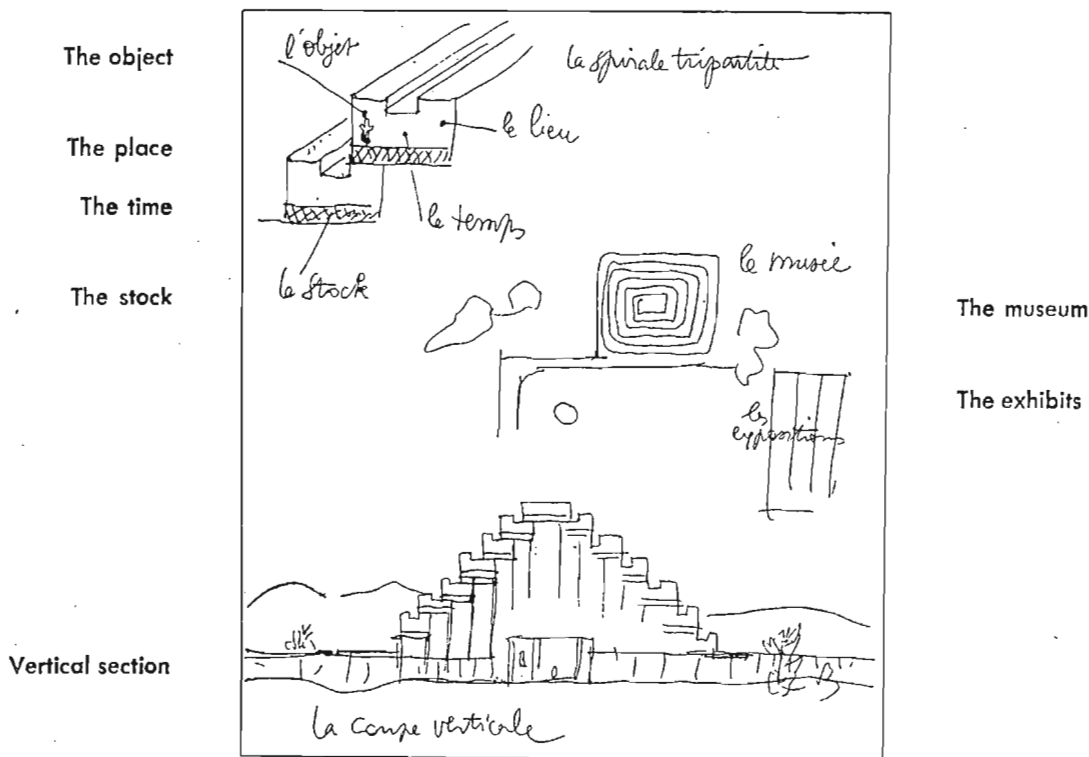 The object
The place
The time
The stock
Vertical section
l'objet
la spirale tripartite
le lieu
le temps
le stock
le musée
les
expositions
la coupe verticale
The museum
The exhibits